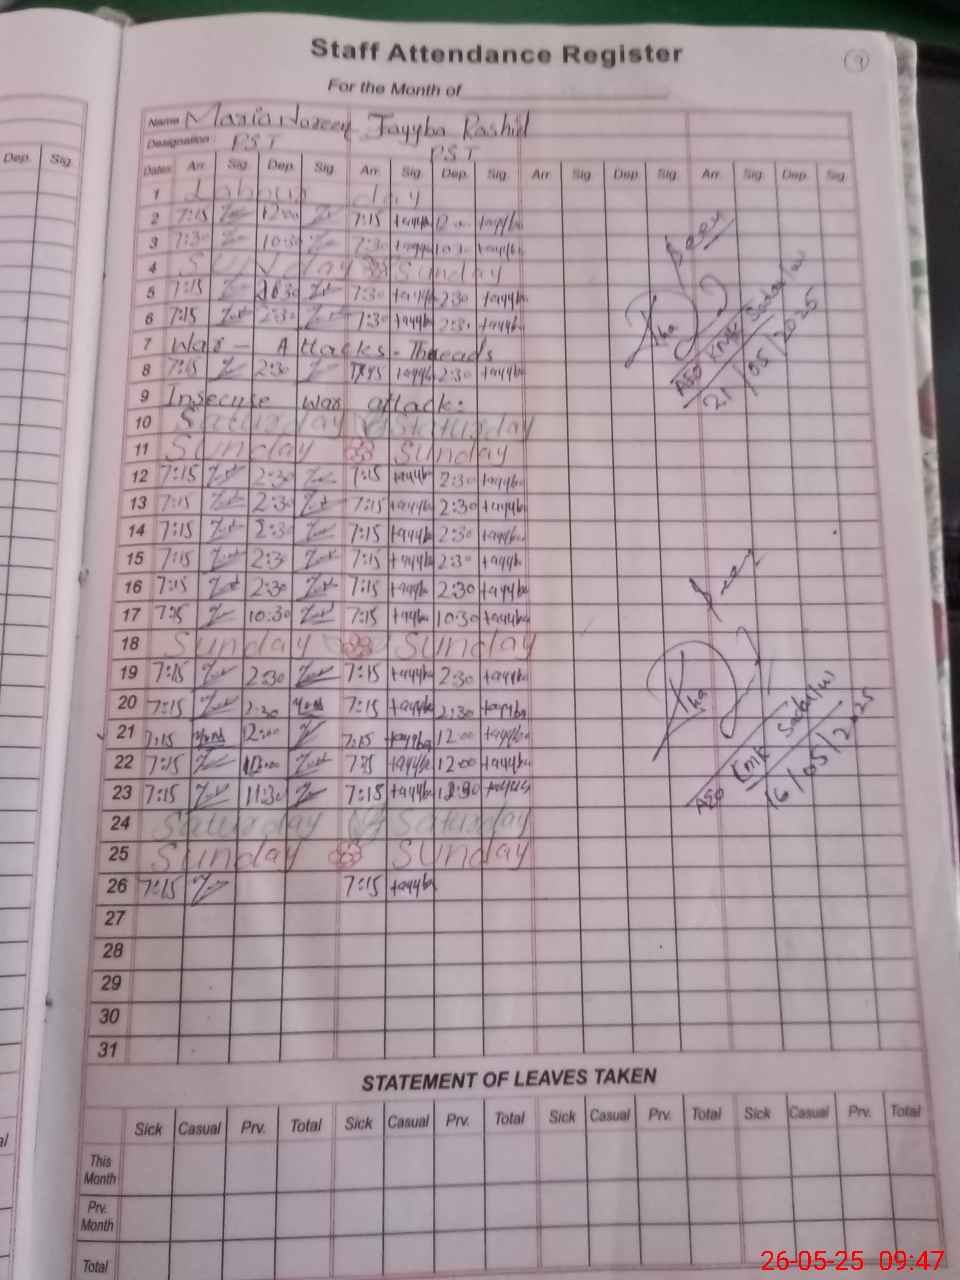 Staff Attendance Register
9
For the Month of
Name Maria Nazeer Tayyba Rashid
Designation PST PST
Dep. Sig.
Dates Arr. Sig. Dep. Sig. Arr. Sig. Dep. Sig. Arr. Sig. Dep. Sig. Arr. Sig. Dep. Sig.
1 Labour day
2 7:15 12:00 7:15 tayyba 12:00 tayyba
3 7:30 10:30 7:30 tayyba 10:30 tayyba
4 Sunday Sunday
5 7:15 7:30 tayyba 2:30 tayyba
6 7:15 2:30 7:30 tayyba 2:30 tayyba
7 War - Attacks - Threads
8 7:15 2:30 tayyba 2:30 tayyba
9 Insecute war attack:
10 Saturday Saturday
11 Sunday Sunday
12 7:15 2:30 7:15 tayyba 2:30 tayyba
13 7:15 2:30 7:15 tayyba 2:30 tayyba
14 7:15 2:30 7:15 tayyba 2:30 tayyba
15 7:15 2:30 7:15 tayyba 2:30 tayyba
16 7:15 2:30 7:15 tayyba 2:30 tayyba
17 7:15 10:30 7:15 tayyba 10:30 tayyba
18 Sunday Sunday
19 7:15 2:30 7:15 tayyba 2:30 tayyba
20 7:15 2:30 7:15 tayyba 2:30 tayyba
21 7:15 12:00 7:15 tayyba 12:00 tayyba
22 7:15 12:00 7:15 tayyba 12:00 tayyba
23 7:15 11:30 7:15 tayyba tayyba
24 Saturday Saturday
25 Sunday Sunday
26 7:15 7:15 tayyba
27
28
29
30
31
Seen
AEO Kmk Sadar/w
21/05/2025
Seen
AEO Kmk Sadar/w
16/05/2025
STATEMENT OF LEAVES TAKEN
Sick Casual Prv. Total Sick Casual Prv. Total Sick Casual Prv. Total Sick Casual Prv. Total
This Month
Prv. Month
Total
26-05-25 09:47